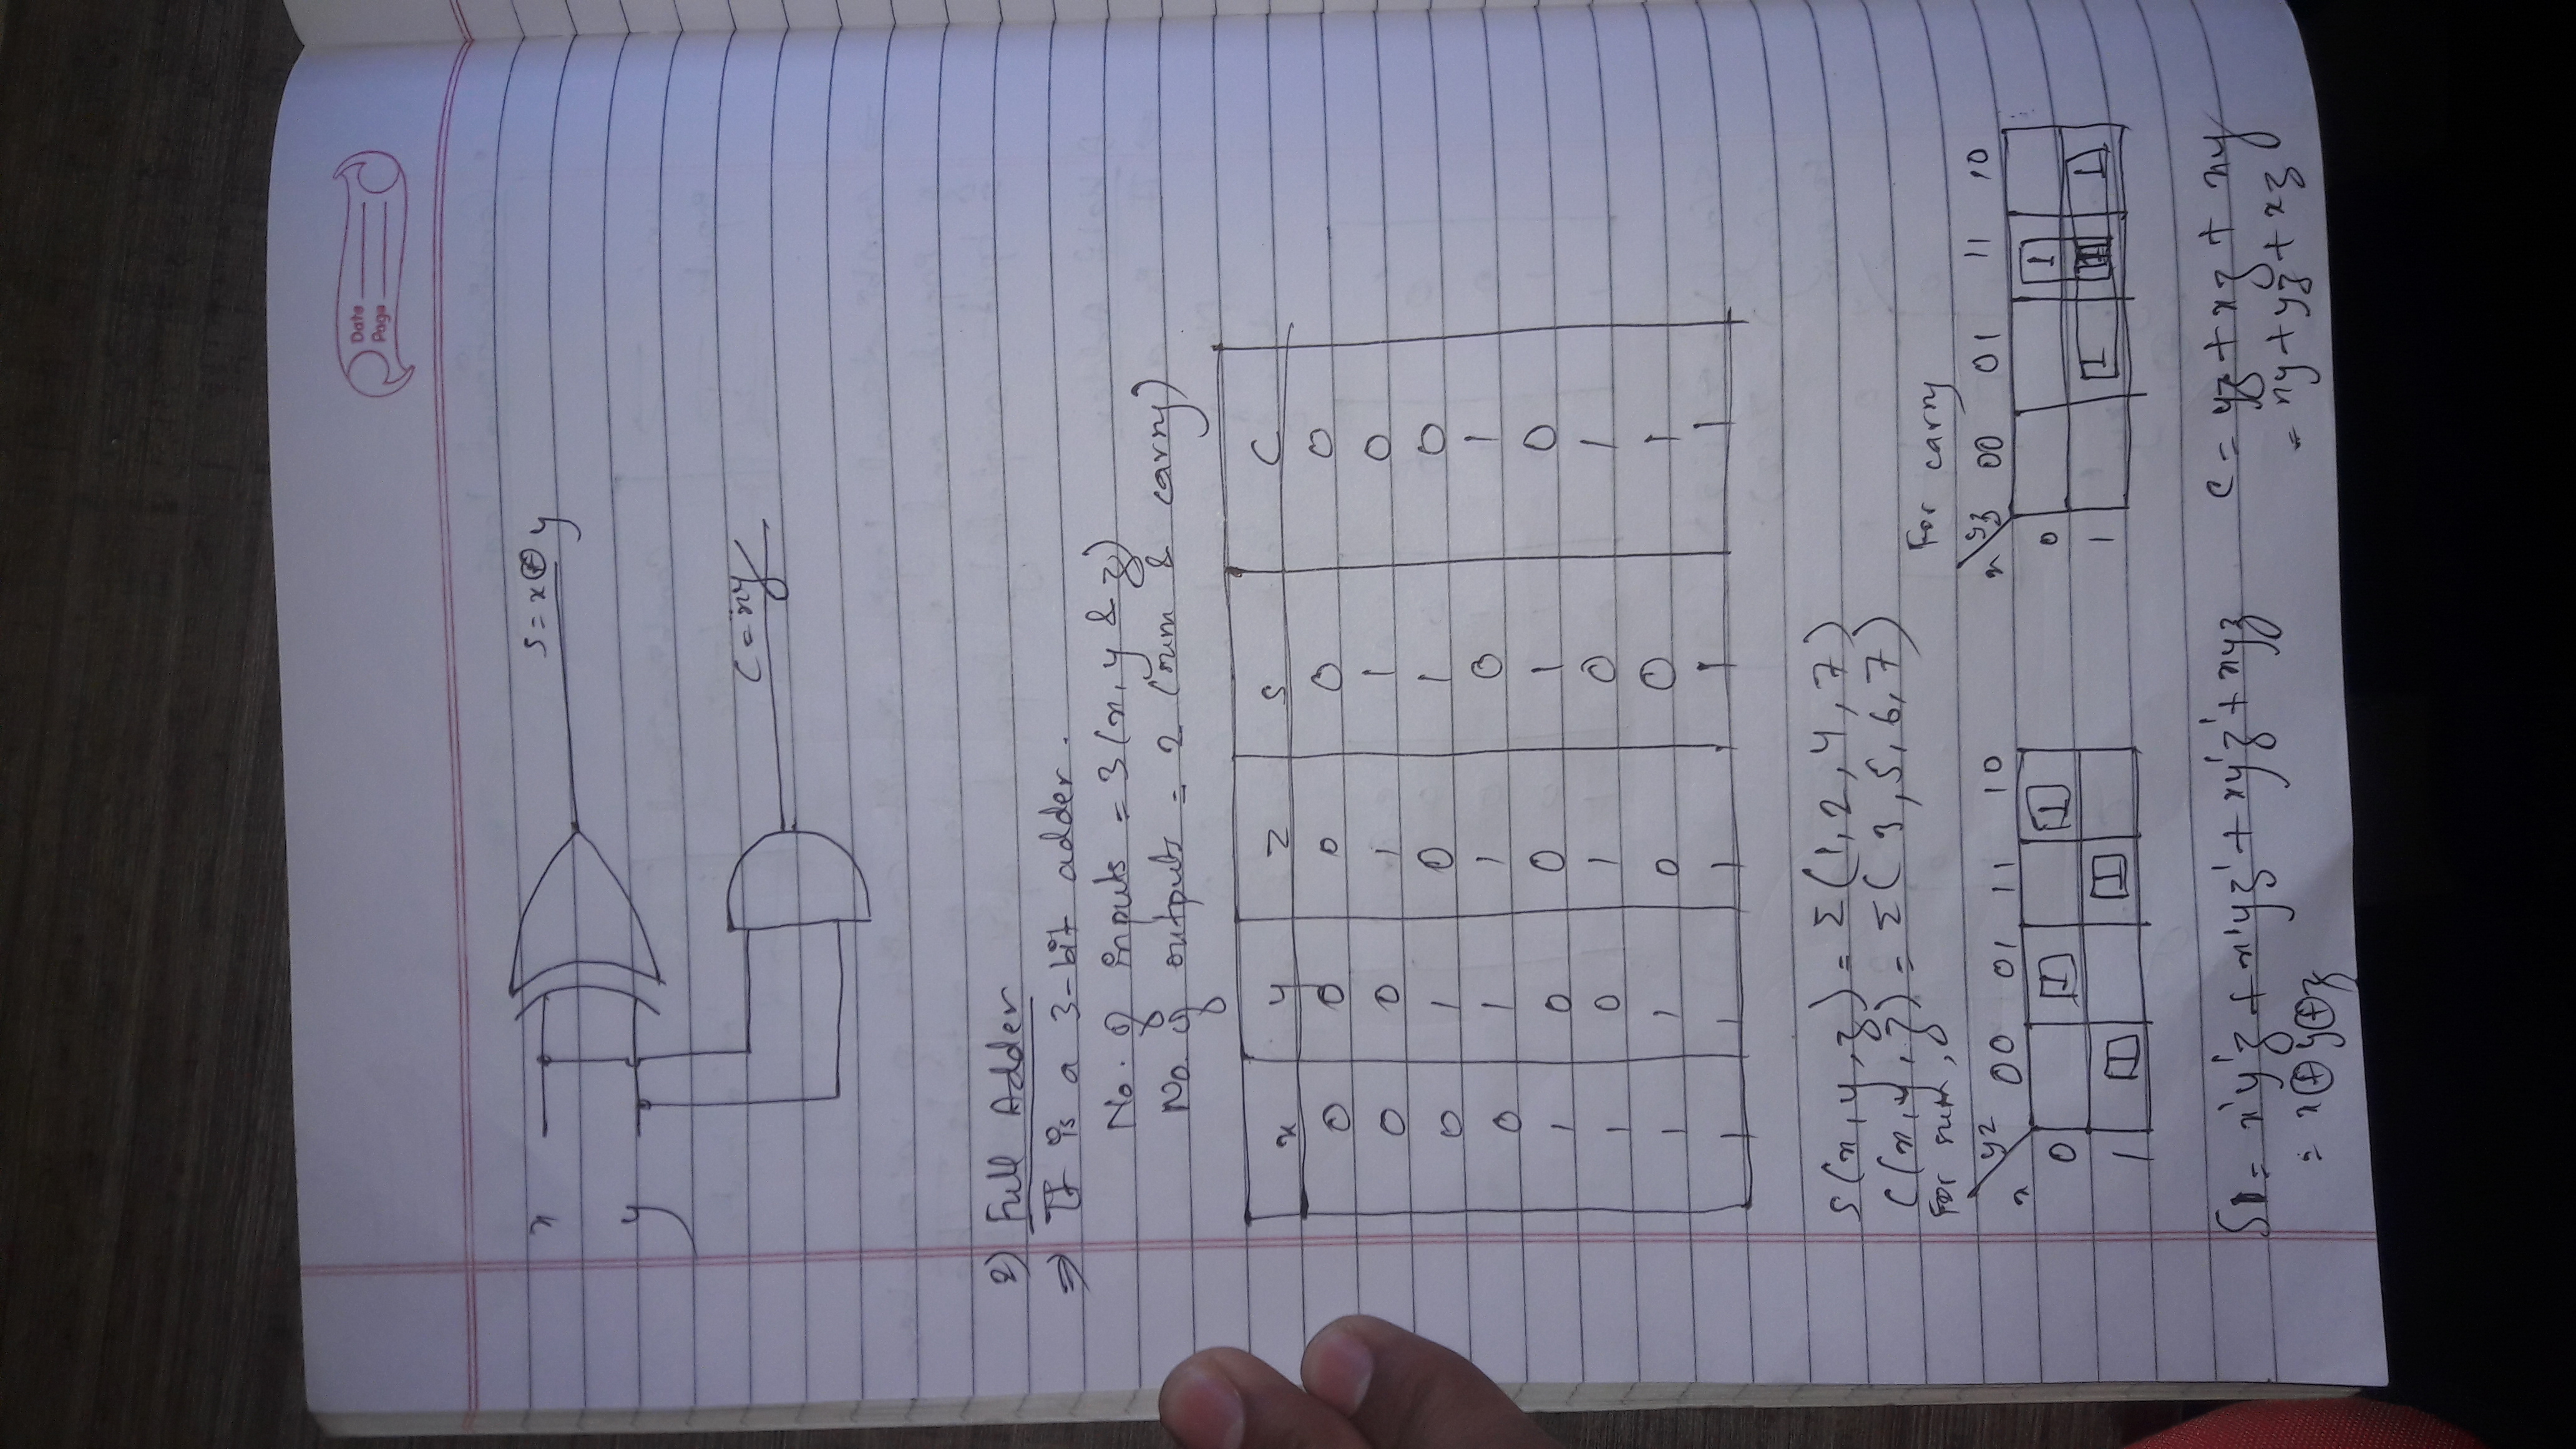 Date
Page
x
S = x ⊕ y
y
C = xy
2) Full Adder
⇒ It is a 3-bit adder.
No. of inputs = 3 (x, y & z)
No. of outputs = 2 (sum & carry)
x y z S C
0 0 0 0 0
0 0 1 1 0
0 1 0 1 0
0 1 1 0 1
1 0 0 1 0
1 0 1 0 1
1 1 0 0 1
1 1 1 1 1
S(x, y, z) = Σ(1, 2, 4, 7)
C(x, y, z) = Σ( 3, 5, 6, 7)
For sum,
For carry
x yz 00 01 11 10
0 1 1
1 1 1
x yz 00 01 11 10
0 1
1 1 1 1
S = x'y'z + x'yz' + xy'z' + xyz
= x⊕y⊕z
C = yz + xz + xy
= xy + yz + xz